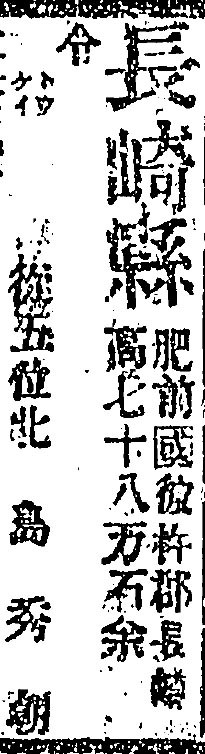 長崎縣
肥前國彼杵郡長崎
高七十八万石余
令
トウ
ケイ
従五位北島秀朝